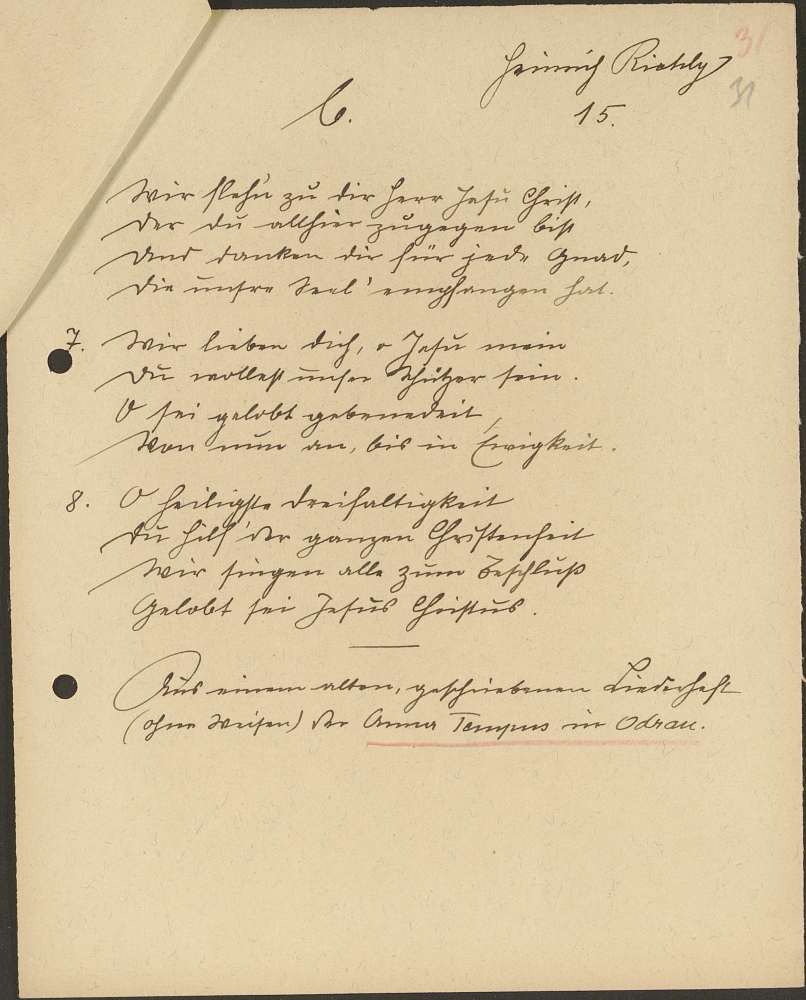 31
31
Heinrich
15.
6.
Wir flehn zu dir Herr Jesu Christ,
Der du allhier zugegen bist
Und danken dir für jede Gnad,
Die unsre Seel' empfangen hat.
7. Wir lieben dich, o Jesu mein
Du wollest unser Schützer sein.
O sei gelobt gebenedeit,
Von nun an, bis in Ewigkeit.
8. O heiligste Dreifaltigkeit
Du hilf der ganzen Christenheit
Wir singen alle zum Beschluß
Gelobt sei Jesus Christus.
Aus einem alten, geschriebenen Liederheft
(ohne Weisen) der Anna Tempus in Odrau.